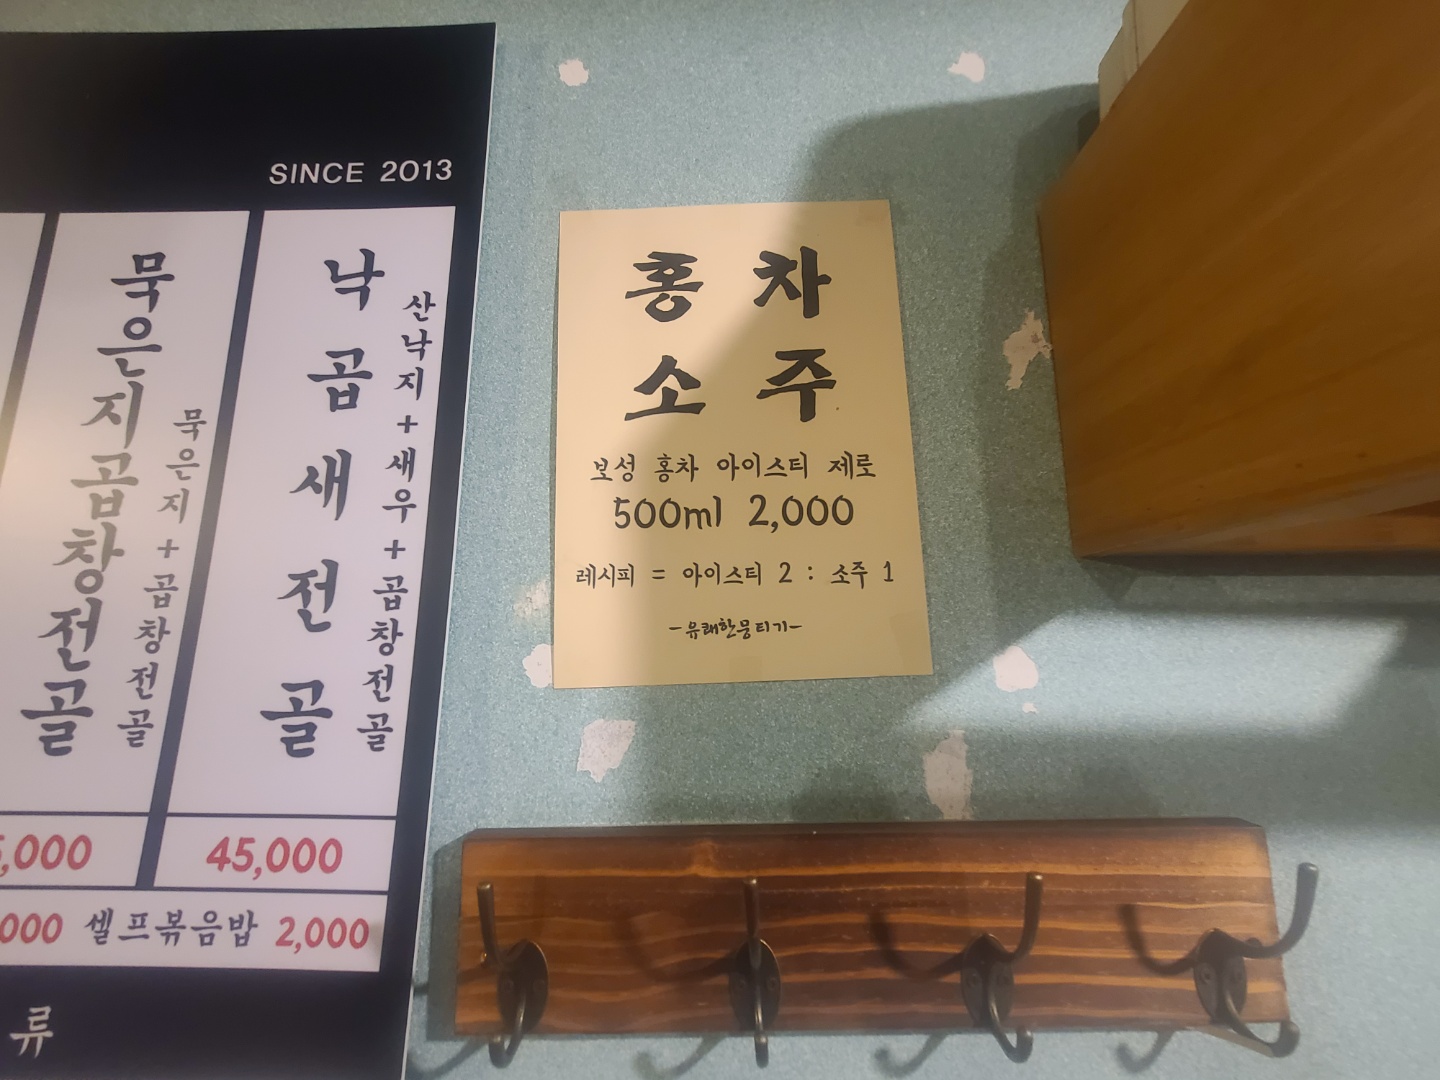 SINCE 2013
묵은지곱창전골
묵은지+곱창전골
낙곱새전골
산낙지+새우+곱창전골
,000
45,000
000 셀프볶음밥 2,000
류
홍차
소주
보성 홍차 아이스티 제로
500ml 2,000
레시피 = 아이스티 2 : 소주 1
-유쾌한뭉티기-